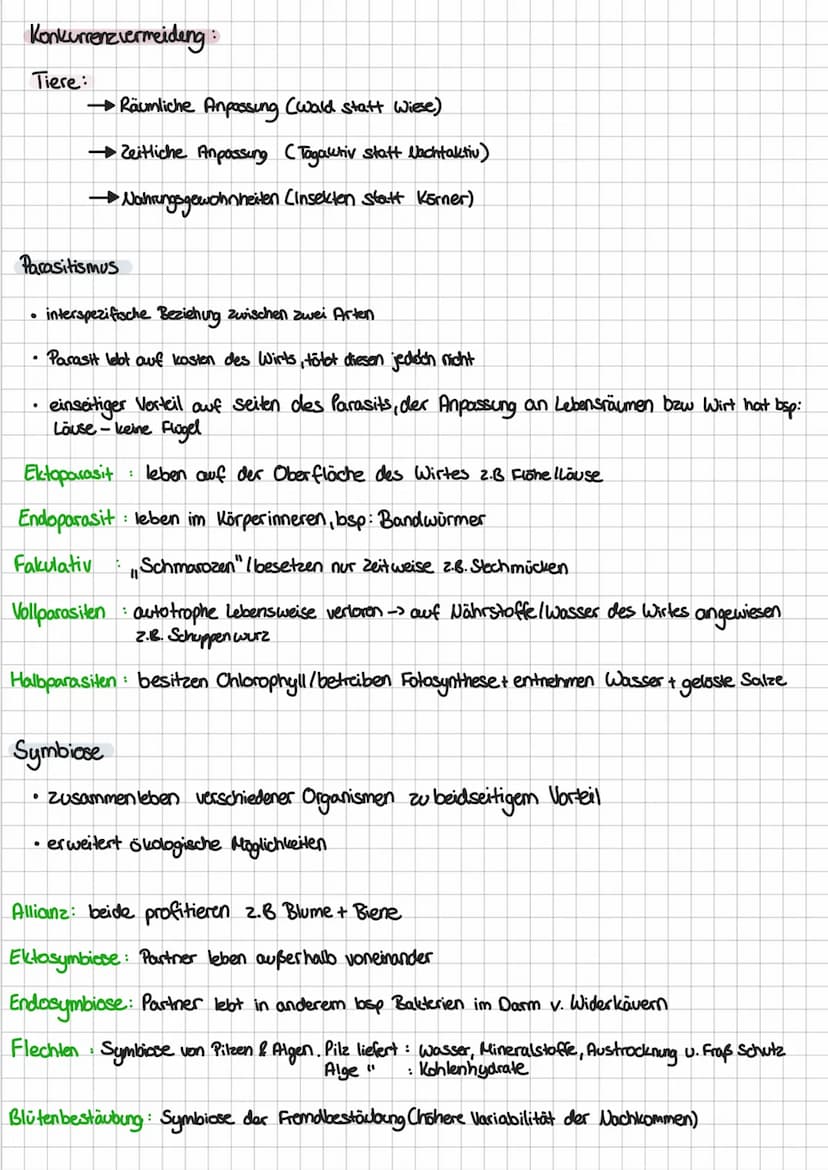 Konkurrenzvermeidung:
Tiere:
→ Räumliche Anpassung (Wald statt Wiese)
→ Zeitliche Anpassung (Tagaktiv statt Nachtaktiv)
→ Nahrungsgewohnheiten (Insekten statt Körner)
Parasitismus
• interspezifische Beziehung zwischen zwei Arten
• Parasit lebt auf kosten des Wirts, tötet diesen jedoch nicht
• einseitiger Vorteil auf seiten des Parasits, der Anpassung an Lebensräumen bzw Wirt hat bsp:
Läuse – keine Flügel
Ektoparasit : leben auf der Oberfläche des Wirtes z.B Flöhe/Läuse
Endoparasit : leben im Körperinneren, bsp: Bandwürmer
Fakulativ : „Schmarozen" / besetzen nur Zeitweise z.B. Stechmücken
Vollparasiten : autotrophe Lebensweise verloren -> auf Nährstoffe/Wasser des Wirtes angewiesen
z.B. Schuppenwurz
Halbparasiten : besitzen Chlorophyll/betreiben Fotosynthese + entnehmen Wasser + gelöste Salze
Symbiose
• zusammenleben verschiedener Organismen zu beidseitigem Vorteil
• erweitert ökologische Möglichkeiten
Allianz: beide profitieren z.B Blume + Biene
Ektosymbiose : Partner leben außerhalb voneinander
Endosymbiose: Partner lebt in anderem bsp Bakterien im Darm v. Widerkäuern
Flechten : Symbiose von Pilzen & Algen. Pilz liefert : Wasser, Mineralstoffe, Austrocknung u. Fraß Schutz
Alge " : Kohlenhydrate
Blütenbestäubung : Symbiose der Fremdbestäubung (höhere Variabilität der Nachkommen)